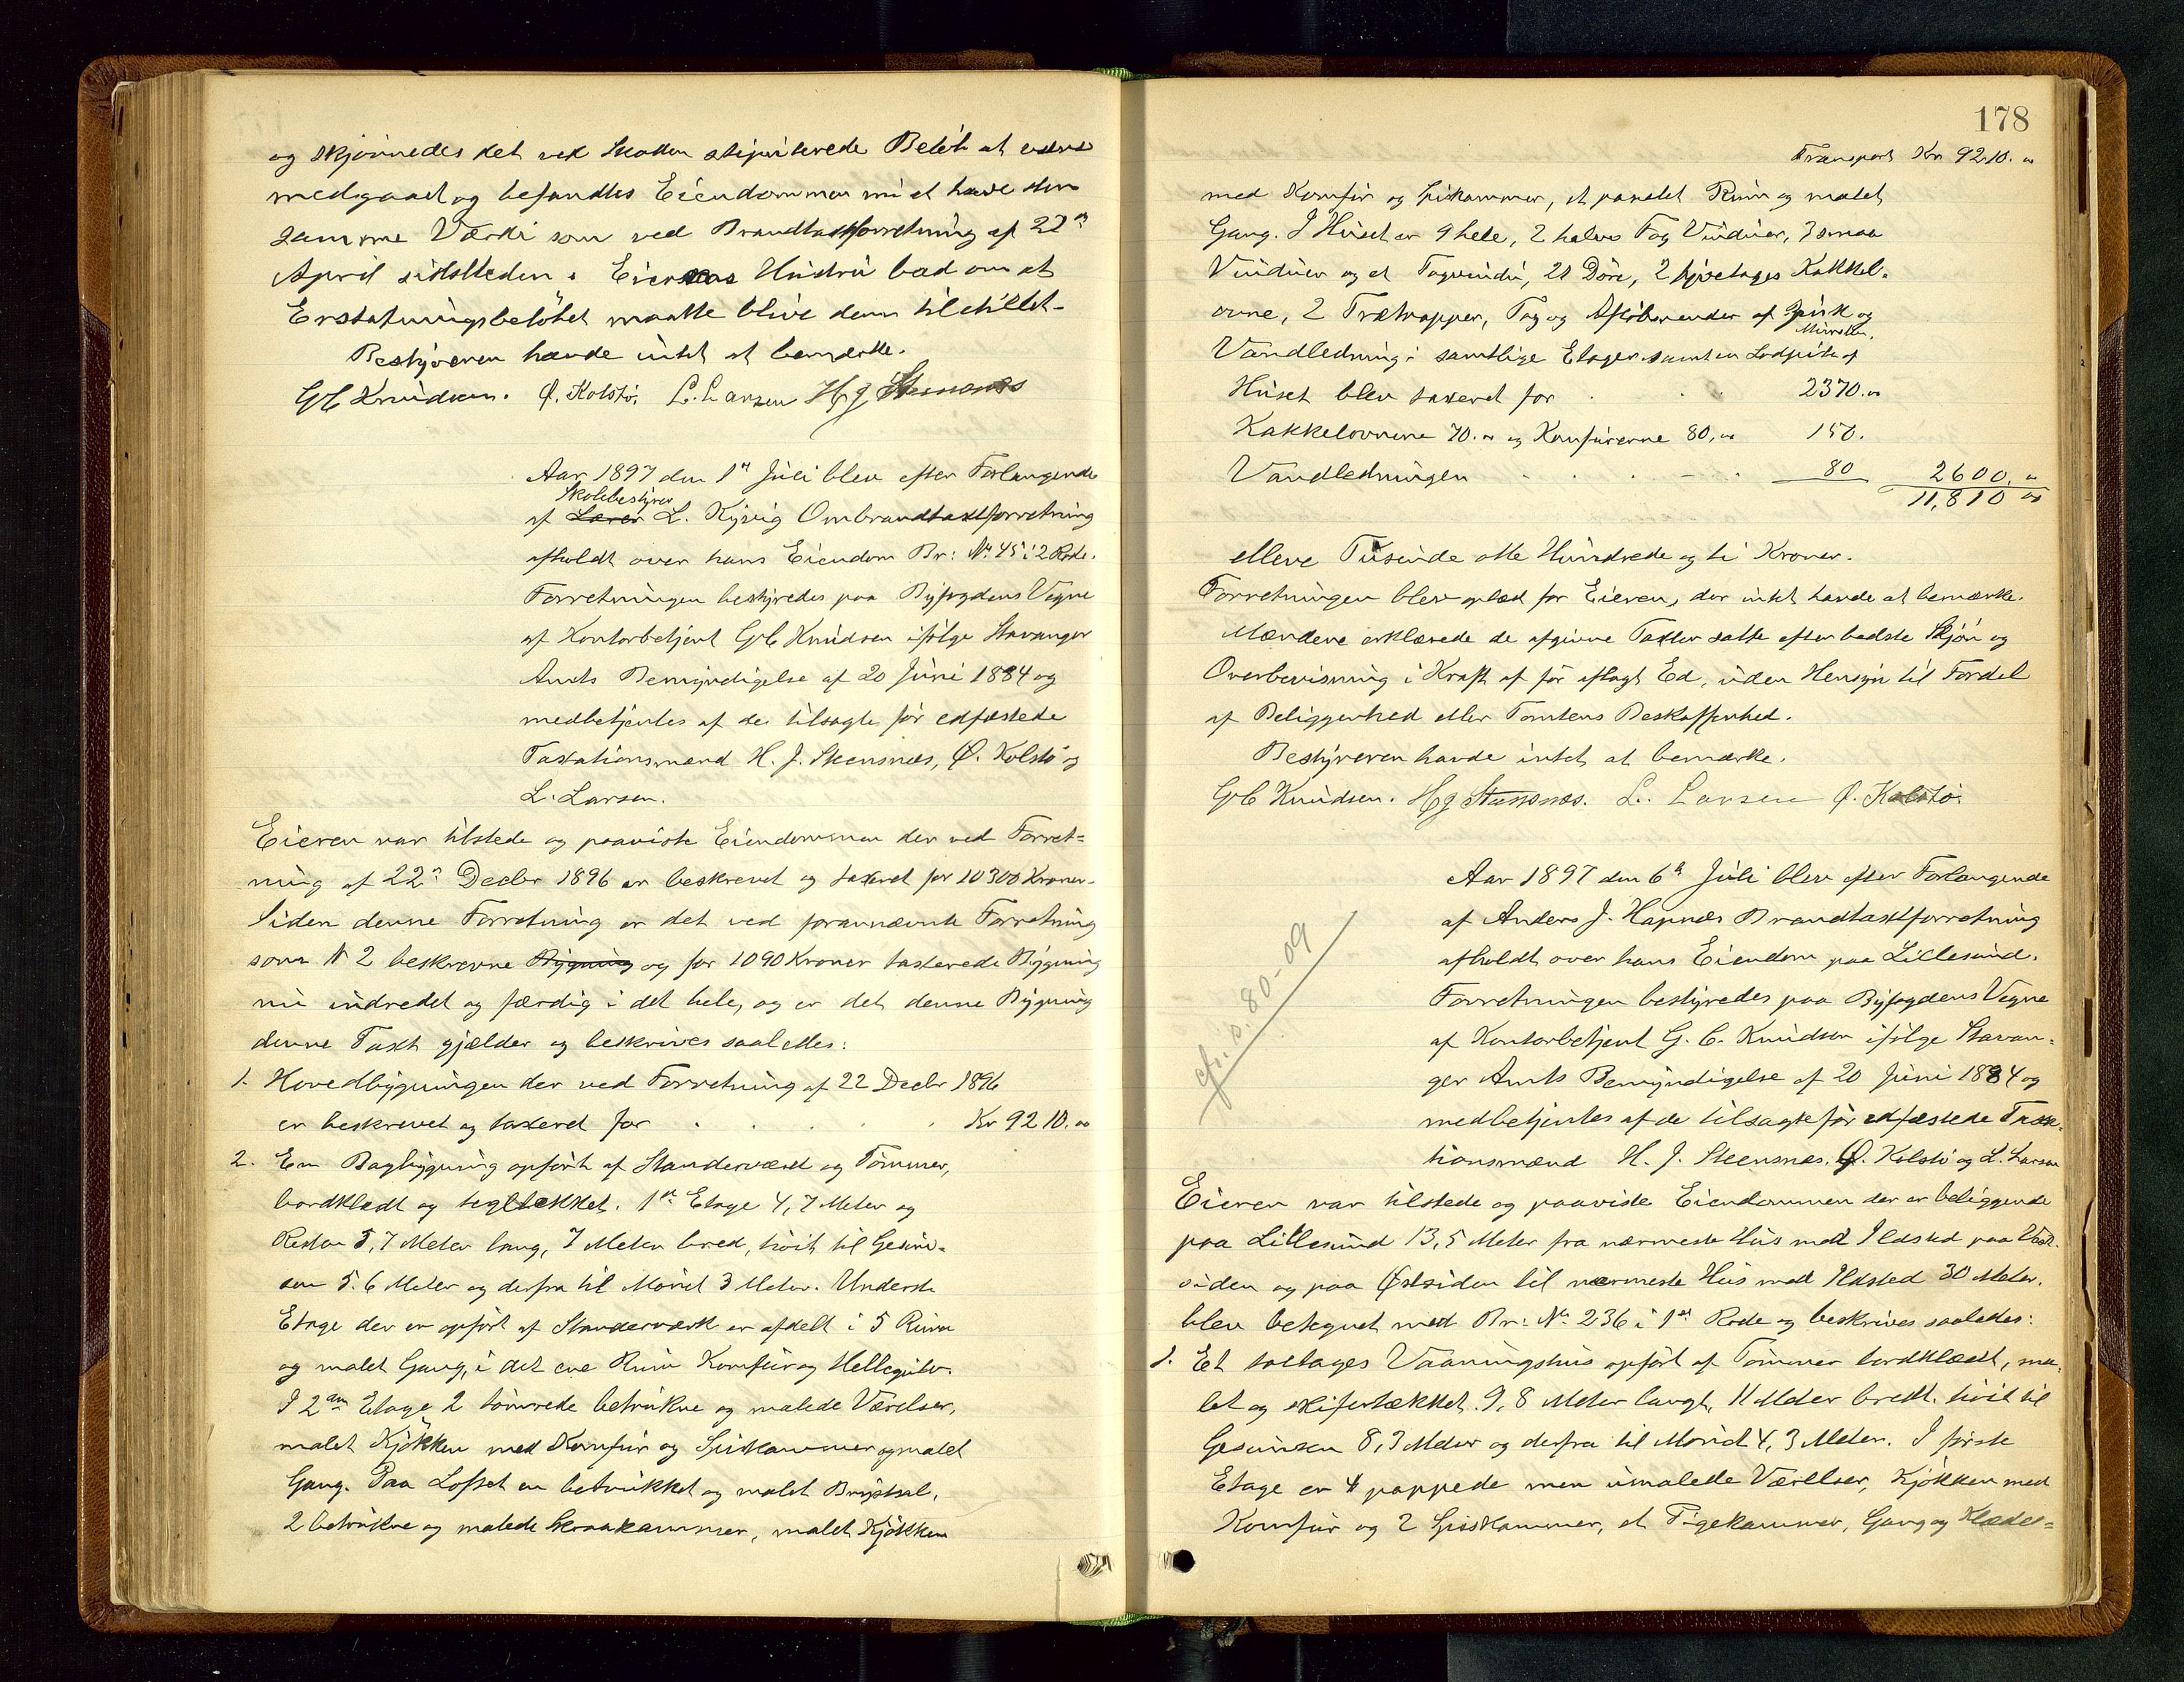 og skjønnedes det ved Skaden stipulerede Beløb at være
medgaaet og befandtes Eiendommen nu at have den
samme Værdi som ved Brandtaxtforretning af 22de
April sidstleden. Eierens Hustru bad om at
Erstatningsbeløbet maatte blive dem tilstillet.
Bestyreren havde intet at bemærke.
G C Knudsen. Ø. Kolstø. L. Larsen H J Steensnæs
Aar 1897 den 1ste Juli blev efter Forlangende
Skolebestyrer
af Lærer L. Kysvig Ombrandtaxtforretning
afholdt over hans Eiendom Br: No 45 i 2 Rode.
Forretningen bestyredes paa Byfogdens Vegne
af Kontorbetjent G C Knudsen ifølge Stavanger
Amts Bemyndigelse af 20 Juni 1884 og
medbetjentes af de tilsagte før edfæstede
Taxtationsmænd H. J. Steensnæs, Ø. Kolstø og
L. Larsen.
Eieren var tilstede og paaviste Eiendommen der ved Forret=
ning af 22de Decbr 1896 er beskrevet og taxeret for 10300 Kroner.
Siden denne Forretning er det ved forannævnte Forretning
som No 2 beskrevne Bygning og for 1090 Kroner taxerede Bygning
nu indredet og færdig i det hele, og er det denne Bygning
denne Taxt gjælder og beskrives saaledes:
1. Hovedbygningen der ved Forretning af 22 Decbr 1896
er beskrevet og taxeret for . . . . Kr 9210.00
2. En Bagbygning opført af Standerværk og Tømmer,
bordklædt og tegltækket. 1ste Etage 4,7 Meter og
Resten 5,7 Meter lang, 7 Meter bred, høit til Gesim=
sen 5.6 Meter og derfra til Mønet 3 Meter. Underste
Etage der er opført af Standerværk er afdelt i 5 Rum
og malet Gang, i det ene Rum Komfur og Hellegulv.
I 2den Etage 2 tømrede betrukne og malede Værelser,
malet Kjøkken med Komfur og Spiskammer og malet
Gang. Paa Loftet en betrukket og malet Brystsal,
2 betrukne og malede Skraakammer, malet Kjøkken
178
Transport Kr 9210.00
med Komfur og Spiskammer, et panelet Rum og malet
Gang. I Huset er 9 hele, 2 halve Fag Vinduer, 3 smaa
Vinduer og et Tagvindu, 21 Døre, 2 Etages Kakkel=
ovne, 2 Trætrapper, Tag og Afløbsrender af Zink og
Mursten.
Vandledning i samtlige Etager samt en Lodpibe af
Huset blev taxeret for . . . 2370.00
Kakkelovnene 70.00 og Komfurerne 80,00 150.
Vandledningen . . . . 80 2600.00
11,810 00
elleve Tusinde otte Hundrede og ti Kroner.
Forretningen blev oplæst for Eieren, der intet havde at bemærke.
Mændene erklærede de afgivne Taxter satte efter bedste Skjøn og
Overbevisning i Kraft af før aflagt Ed, uden Hensyn til Fordel
af Beliggenhed eller Tomtens Beskaffenhed.
Bestyreren havde intet at bemærke.
G C Knudsen. H J Steensnæs. L. Larsen Ø. Kolstø.
Aar 1897 den 6te Juli blev efter Forlangende
af Anders J. Hapnæs Brandtaxtforretning
afholdt over hans Eiendom paa Lillesund.
Forretningen bestyredes paa Byfogdens Vegne
af Kontorbetjent G. C. Knudsen ifølge Stavan=
ger Amts Bemyndigelse af 20 Juni 1884 og
medbetjentes af de tilsagte før edfæstede Taxa=
tionsmænd H. J. Steensnæs. Ø. Kolstø og L. Larsen
cfr. s. 80-09
Eieren var tilstede og paaviste Eiendommen der er beliggende
paa Lillesund 13,5 Meter fra nærmeste Hus med Ildsted paa Vest=
siden og paa Østsiden til nærmeste Hus med Ildsted 30 Meter.
blev betegnet med Br: No 236 i 1ste Rode og beskrives saaledes:
1. Et toetages Vaaningshus opført af Tømmer bordklædt, ma=
let og skifertækket. 9,8 Meter langt, 11 Meter bredt. høit til
Gesimsen 8,3 Meter og derfra til Mønet 4,3 Meter. I første
Etage er 4 pappede men umalede Værelser, Kjøkken med
Komfur og 2 Spiskammer, et Pigekammer, Gang og Klæde=